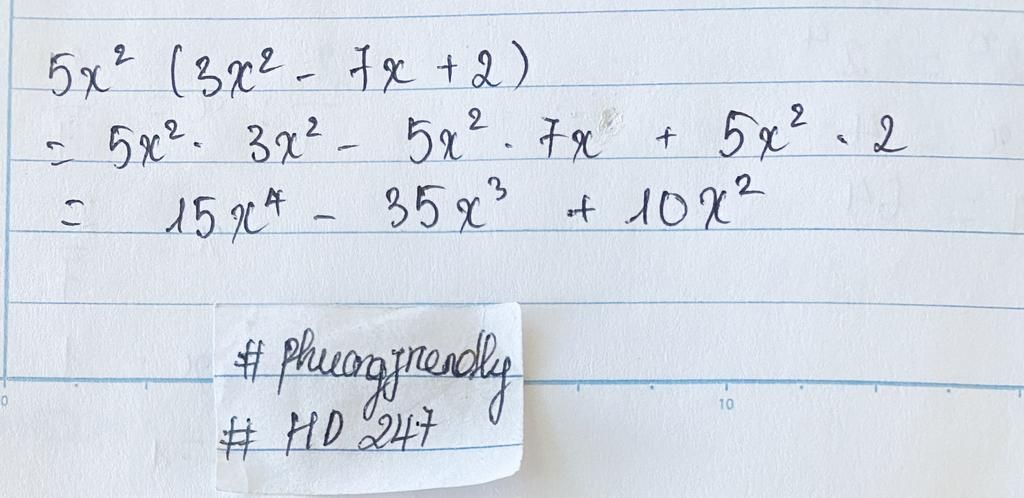 5x² (3x² - 7x + 2)
= 5x² . 3x² - 5x² . 7x + 5x² . 2
= 15x⁴ - 35x³ + 10x²
# phuongfriendly
# HD 247
0 10